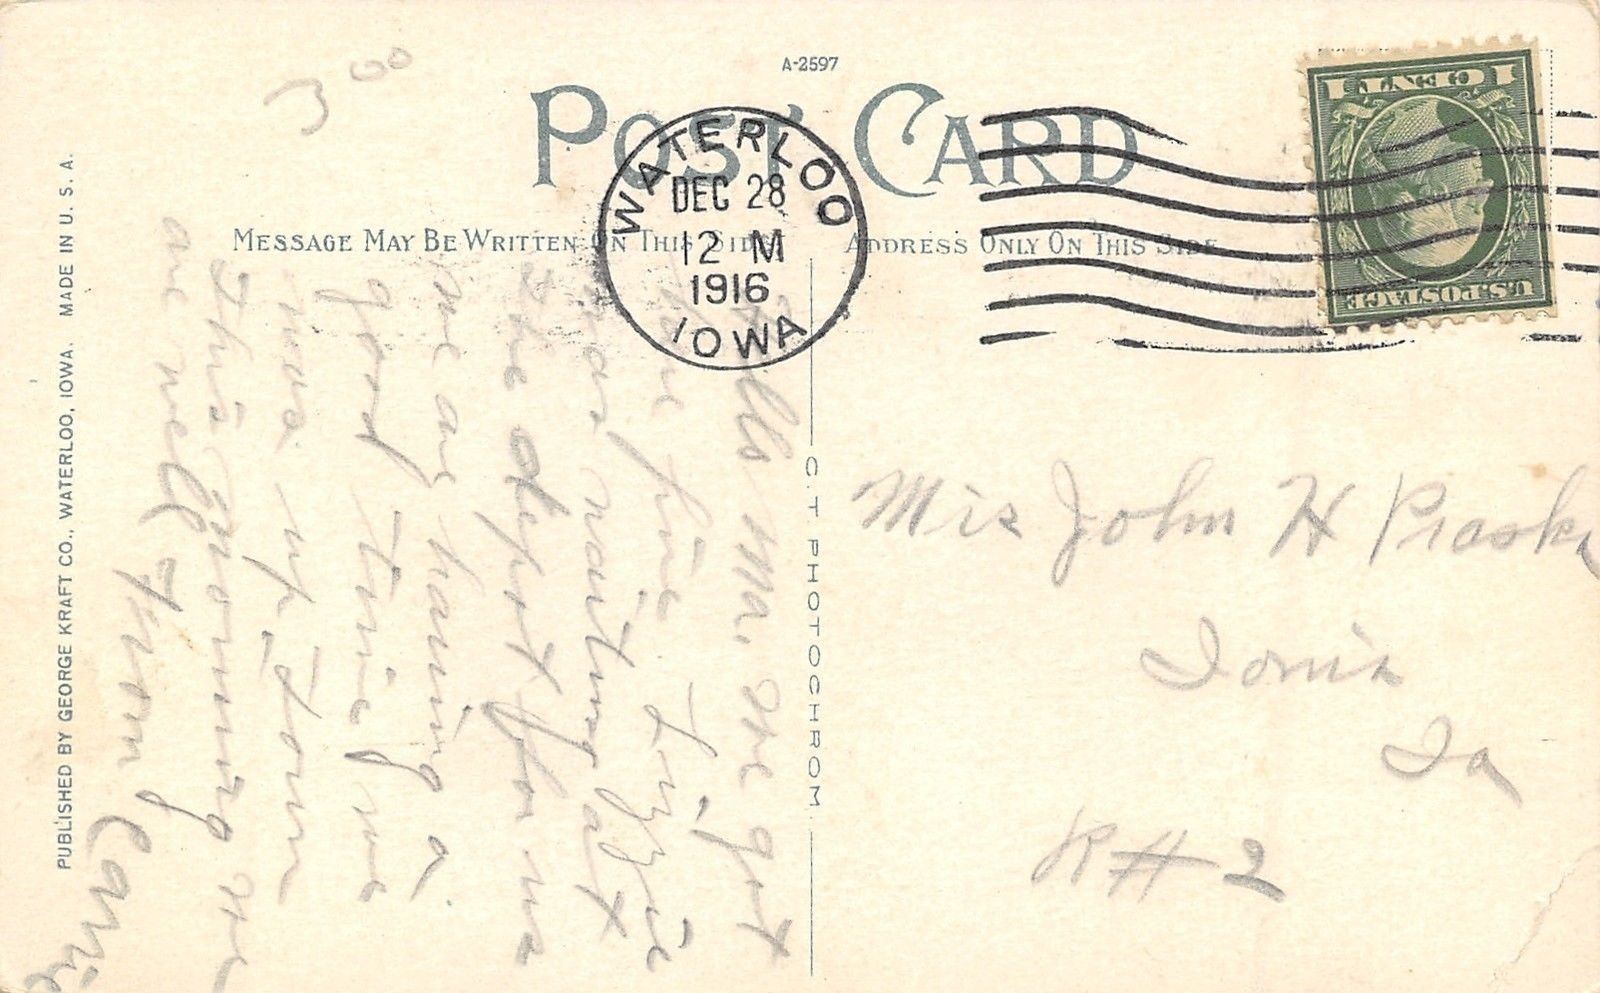 A-2597
POST CARD
WATERLOO
DEC 28
12 M
1916
IOWA
1 CENT 1
U.S. POSTAGE
MESSAGE MAY BE WRITTEN ON THIS SIDE
ADDRESS ONLY ON THIS SIDE
Hello Ma. We got
here fine Lizzie
was waiting at
the depot for us
we are having a
good time we
was up town
this morning we
are well
from
PUBLISHED BY GEORGE KRAFT CO., WATERLOO, IOWA. MADE IN U. S. A.
C. T. PHOTOCHROM
Mrs John H
Ionia
Ia
R # 2